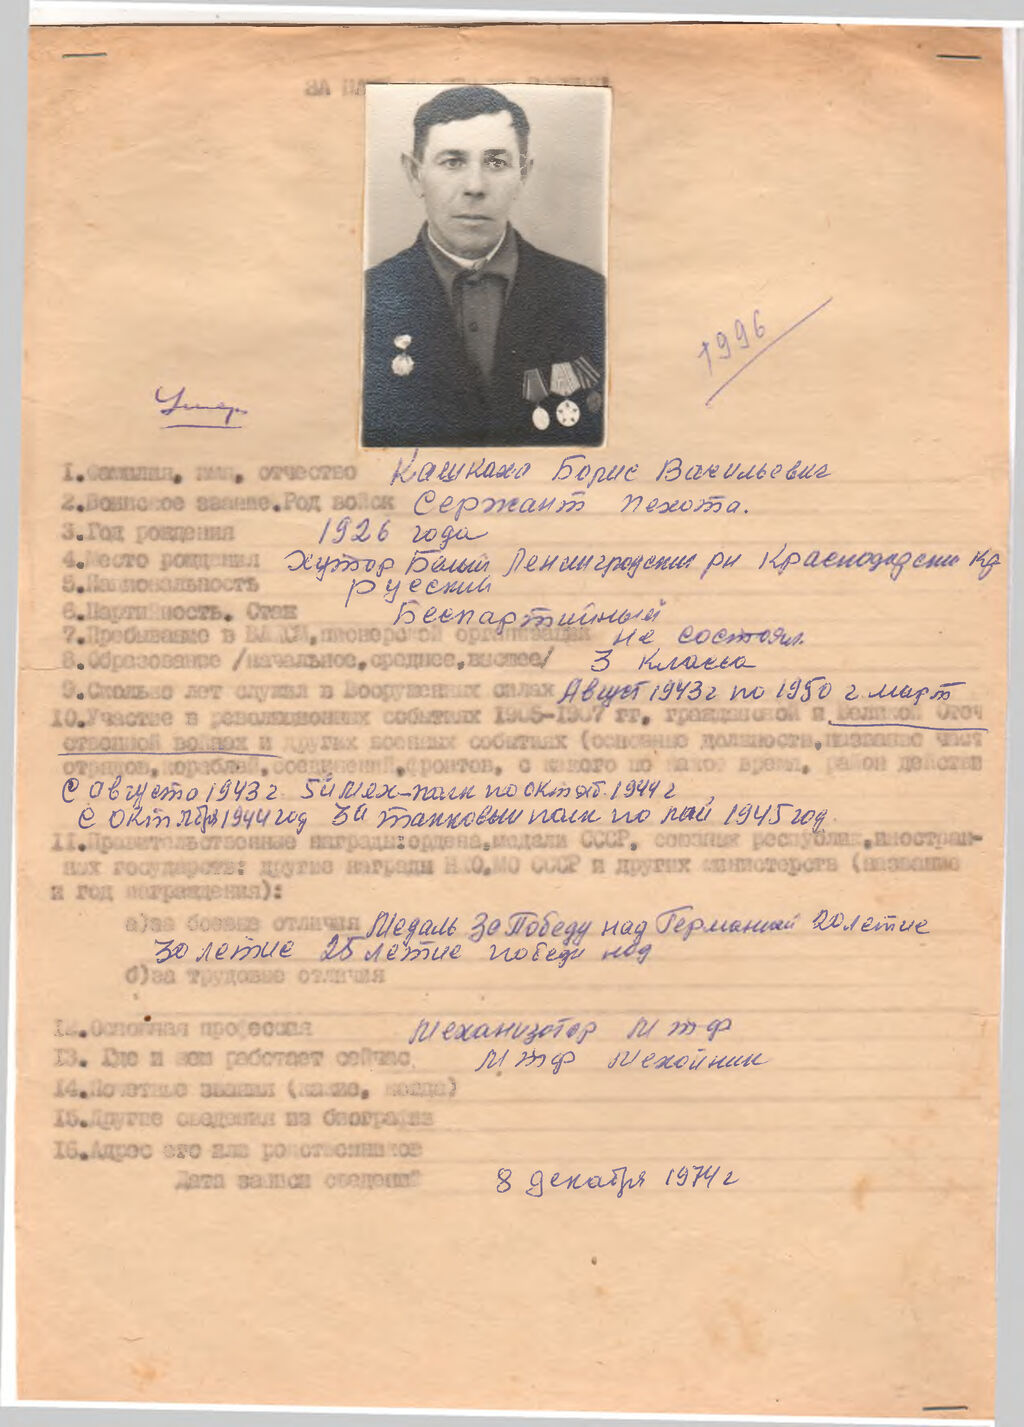 ЗА
1996
Умер
1.Фамилия, имя, отчество Кашкаха Борис Васильевич
2.Воинское звание.Род войск Сержант пехота.
3.Год рождения 1926 года
4.Место рождения Хутор Белый Ленинградский рн Краснодадский Кр
5.Национальность русский
6.Партийность. Стаж Беспартийный
7.Пребывание в ВЛКСМ,пионерской организации не состоял
8.Образование /начальное,среднее,высшее/ 3 класса
9.Сколько лет служил в Вооруженных силах Август 1943г по 1950 г март
10.Участие в революционных событиях 1905-1907 гг, гражданской и Великой Отеч
ственной войнах и других военных событиях (основные должности,название част
отрядов,кораблей,соединений,фронтов, с какого по какое время, район действи
С августа 1943 г 5й мех-полк по октяб. 1944 г
С Октября 1944 год 3й танковый полк по май 1945 год.
11.Правительственные награды:ордена,медали СССР, союзных республик,иностран-
ных государств: другие награды НКО,МО СССР и других министерств (название
и год награждения):
а)за боевые отличия Медаль За Победу над Германией 20 летие
30 летие 25 летие победи над
б)за трудовые отличия
12.Основная профессия Механизатор МТФ
13. Где и кем работает сейчас МТФ
14.Почетные звания (какие, когда)
15.Другие сведения из биографии
16.Адрес его или родственников
Дата записи сведений 8 декабря 1974 г